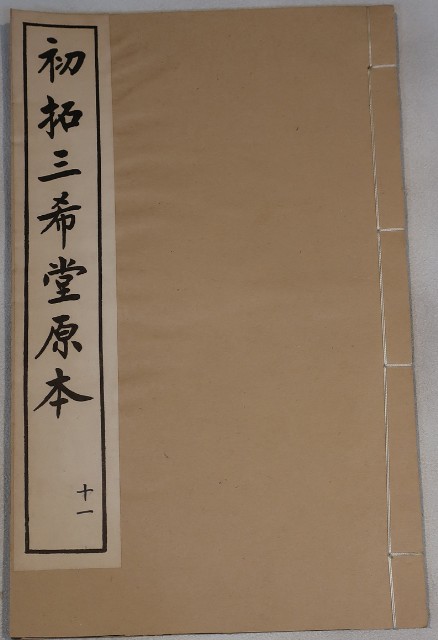 初拓三希堂原本
十一